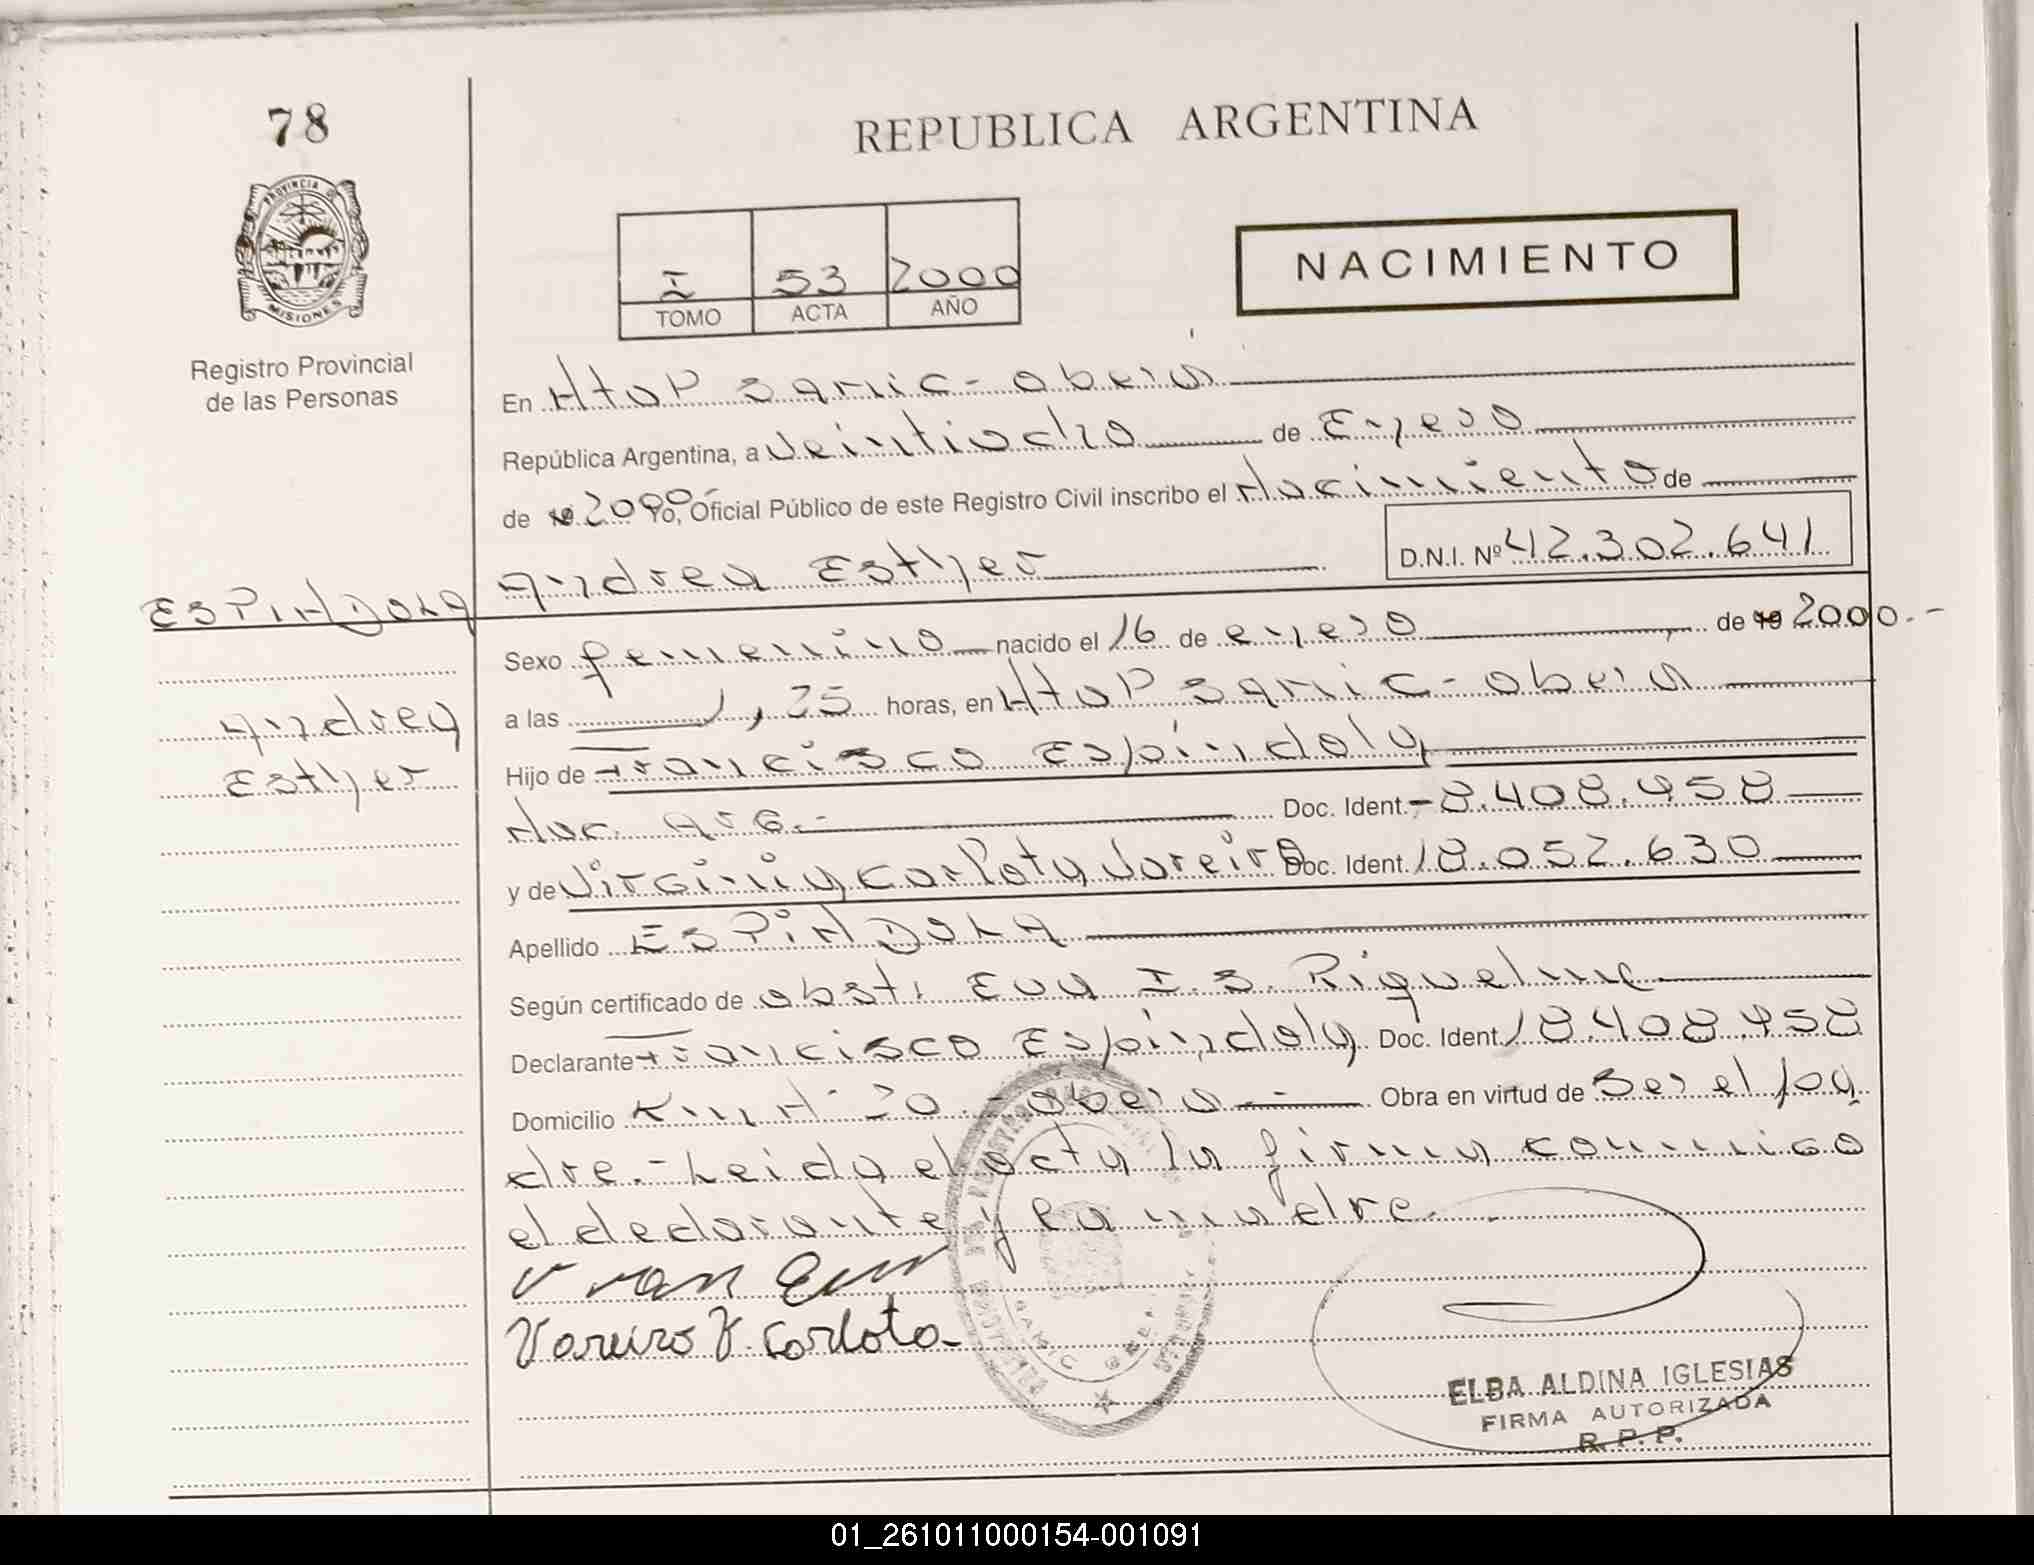 78
REPUBLICA ARGENTINA
PROVINCIA D
MISIONES
Registro Provincial
de las Personas
I 53 2000
TOMO ACTA AÑO
NACIMIENTO
En Htop Samic - Oberá
República Argentina, a Veintiocho de Enero
de 19 2000 Yo, Oficial Público de este Registro Civil inscribo el Nacimiento de
Andrea Esther D.N.I. Nº 42.302.641
ESPINDOLA
Sexo femenino nacido el 16 de enero de 19 2000.-
a las 1,25 horas, en Htop Samic - Oberá
Andrea
Esther
Hijo de Francisco Espíndola
Nac. Arg.- Doc. Ident. 8.408.458
y de Virginia Carlota Vareiro Doc. Ident. 18.052.630
Apellido ESPINDOLA
Según certificado de obst. Eva I. S. Riquelme
Declarante Francisco Espíndola Doc. Ident. 18.408.458
Domicilio Km Nº 20 - Oberá Obra en virtud de Ser el pa
dre.- Leída el acta la firma conmigo
el declarante y la madre.
Vareiro V. Carlota
SAMIC OBERA
ELBA ALDINA IGLESIAS
FIRMA AUTORIZADA
R. P. P.
01_261011000154-001091